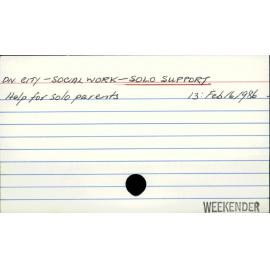 DN CITY - SOCIAL WORK - SOLO SUPPORT
Help for solo parents 13: Feb/6/1986
WEEKENDER